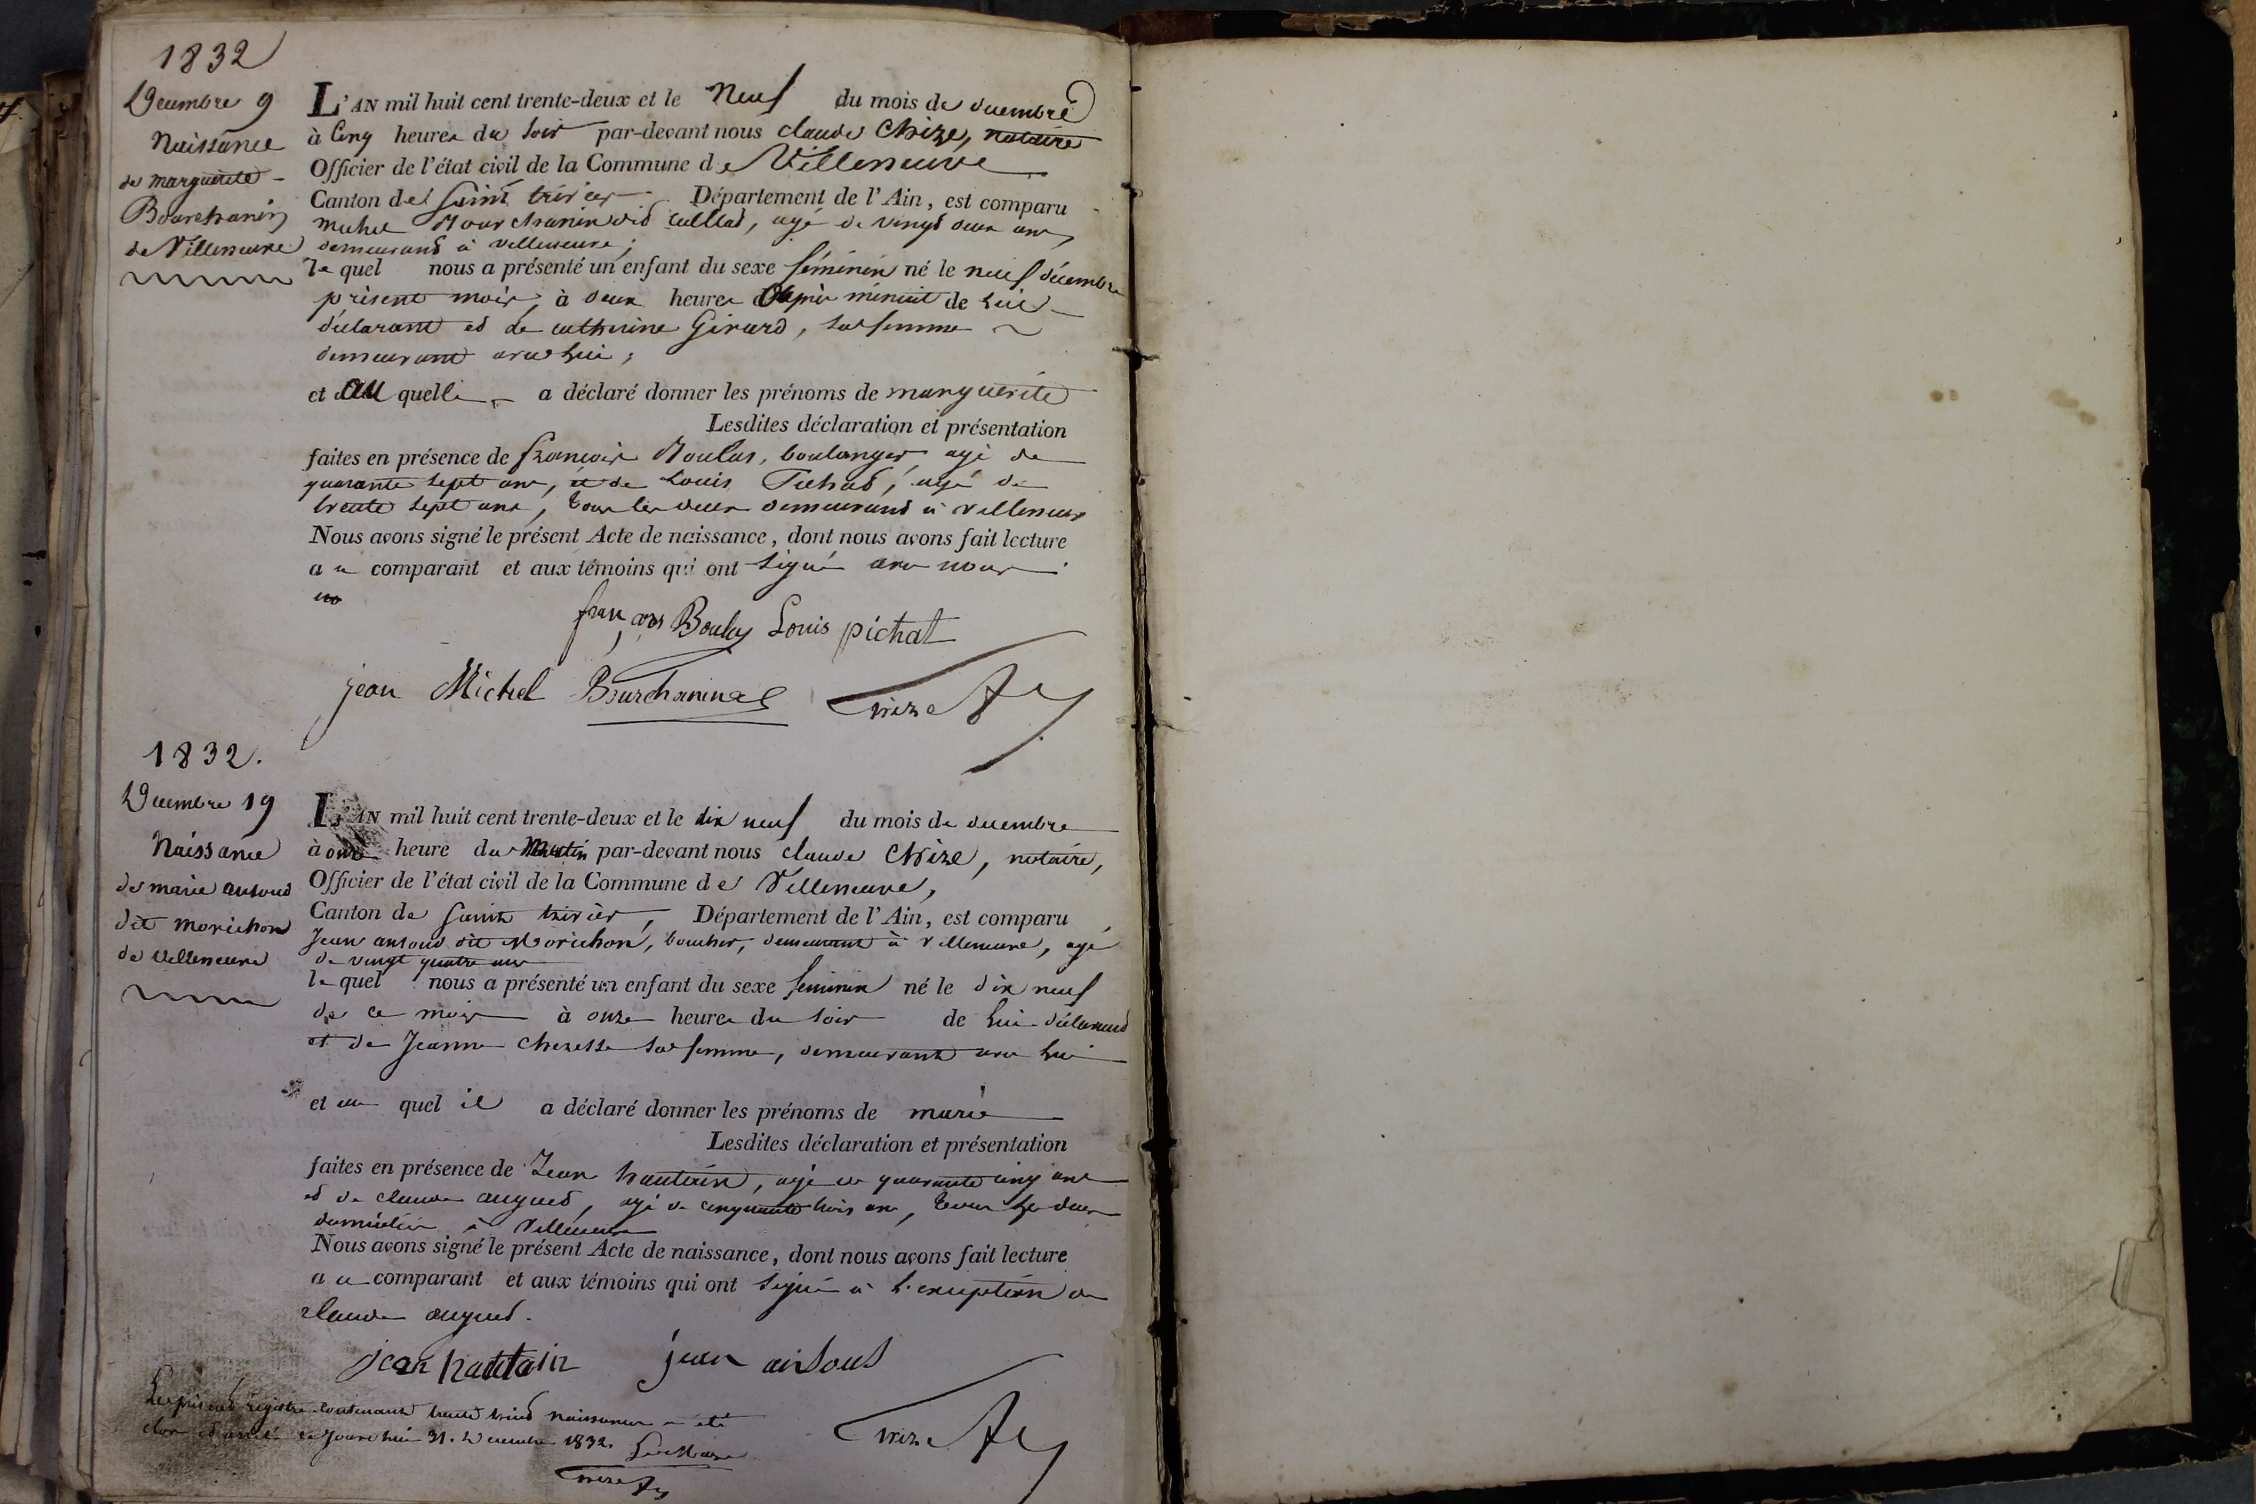 1832
Décembre 9
Naissance
de marguerite
Bourchanin
de Villeneuve
L'AN mil huit cent trente-deux et le neuf du mois de décembre
à Cinq heures du Soir par-devant nous claude Chize, notaire
Officier de l'état civil de la Commune de Villeneuve
Canton de Saint trivier Département de l'Ain, est comparu
michel Bourchanin dit, agé de vingt deux ans,
demeurant à villeneuve;
le quel nous a présenté un enfant du sexe féminin né le neuf décembre
présent mois, à deux heures après minuit de lui
déclarant et de catherine Girard, sa femme
demeurant avec lui;
et quelle a déclaré donner les prénoms de marguerite
Lesdites déclaration et présentation
faites en présence de françois Boulas, boulanger, agé de
quarante sept ans, et de Louis Pichat, agé de
trente sept ans, tous les deux demeurant à villeneuve
Nous avons signé le présent Acte de naissance, dont nous avons fait lecture
au comparant et aux témoins qui ont signé avec nous
françois Boulas Louis pichat
jean Michel Bourchanin Chize
1832.
Décembre 19
Naissance
de marie ansoud
dit morichon
de villeneuve
L'AN mil huit cent trente-deux et le dix neuf du mois de décembre
à onze heure du Matin par-devant nous claude Chize, notaire,
Officier de l'état civil de la Commune de Villeneuve,
Canton de Saint trivier, Département de l'Ain, est comparu
Jean ansoud dit Morichon, boucher, demeurant à villeneuve, agé
de vingt quatre ans
le quel nous a présenté un enfant du sexe feminin né le dix neuf
de ce mois à onze heures du soir de lui déclarant
et de Jeanne sa femme, demeurant avec lui
et au quel il a déclaré donner les prénoms de marie
Lesdites déclaration et présentation
faites en présence de Jean hautain, agé de quarante cinq ans
et de claude, agé de cinquante trois ans, tous les deux
domiciliés à Villeneuve
Nous avons signé le présent Acte de naissance, dont nous avons fait lecture
au comparant et aux témoins qui ont signé à l'exception de
claude
jean hautain jean ansoud
Chize
Le présent registre contenant naissances a été
clos et arrêté ce jourd'hui 31. Décembre 1832.
Le Maire
Chize